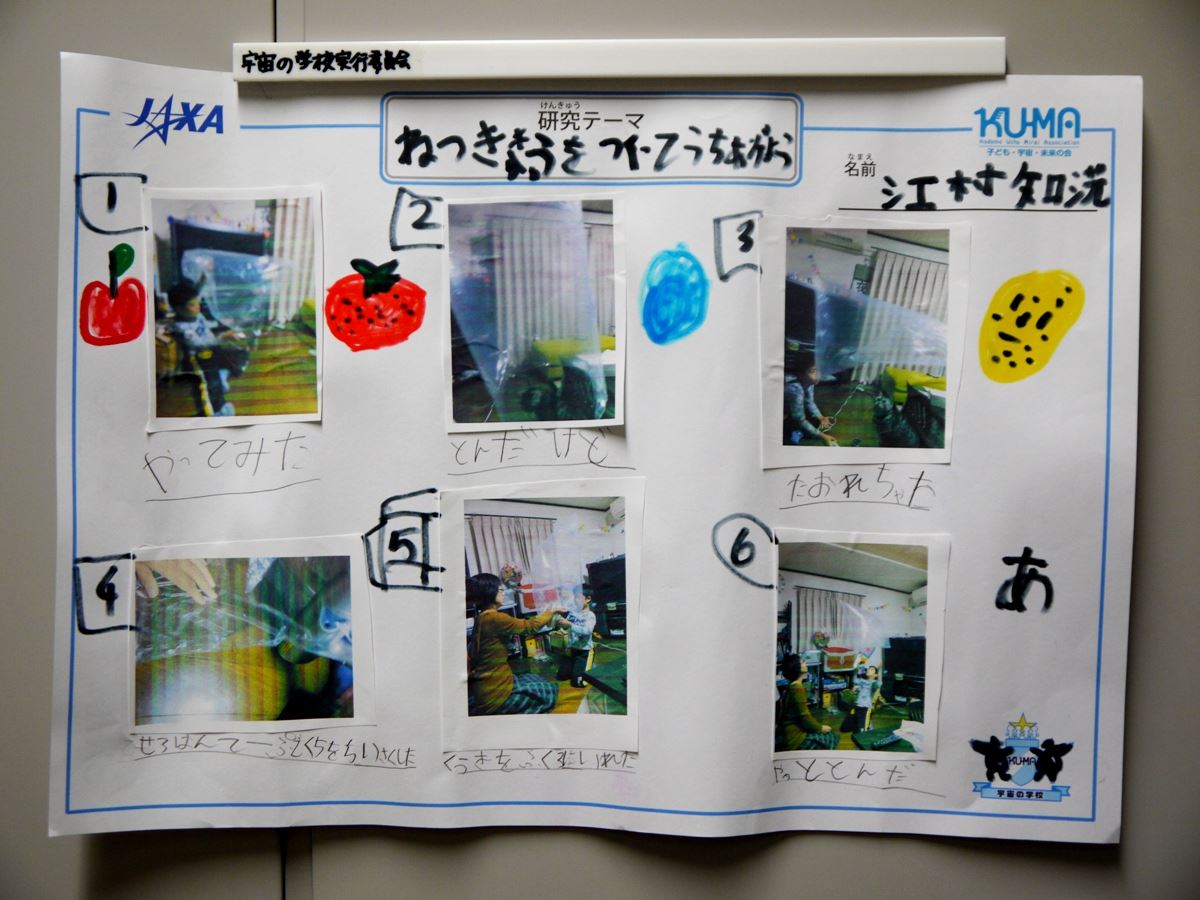 宇宙の学校実行委員会
JAXA
けんきゅう
研究テーマ
ねつききゅうを つくってうちあげよう
KU-MA
Kodomo Uchu Mirai Association
子ども・宇宙・未来の会
なまえ
名前
江村 知洸
1
2
3
やってみた
とんだけど
たおれちゃた
4
5
6
あ
せろはんてーぷでくちをちいさくした
くうきをふくろにいれた
やっととんだ
KU-MA
宇宙の学校